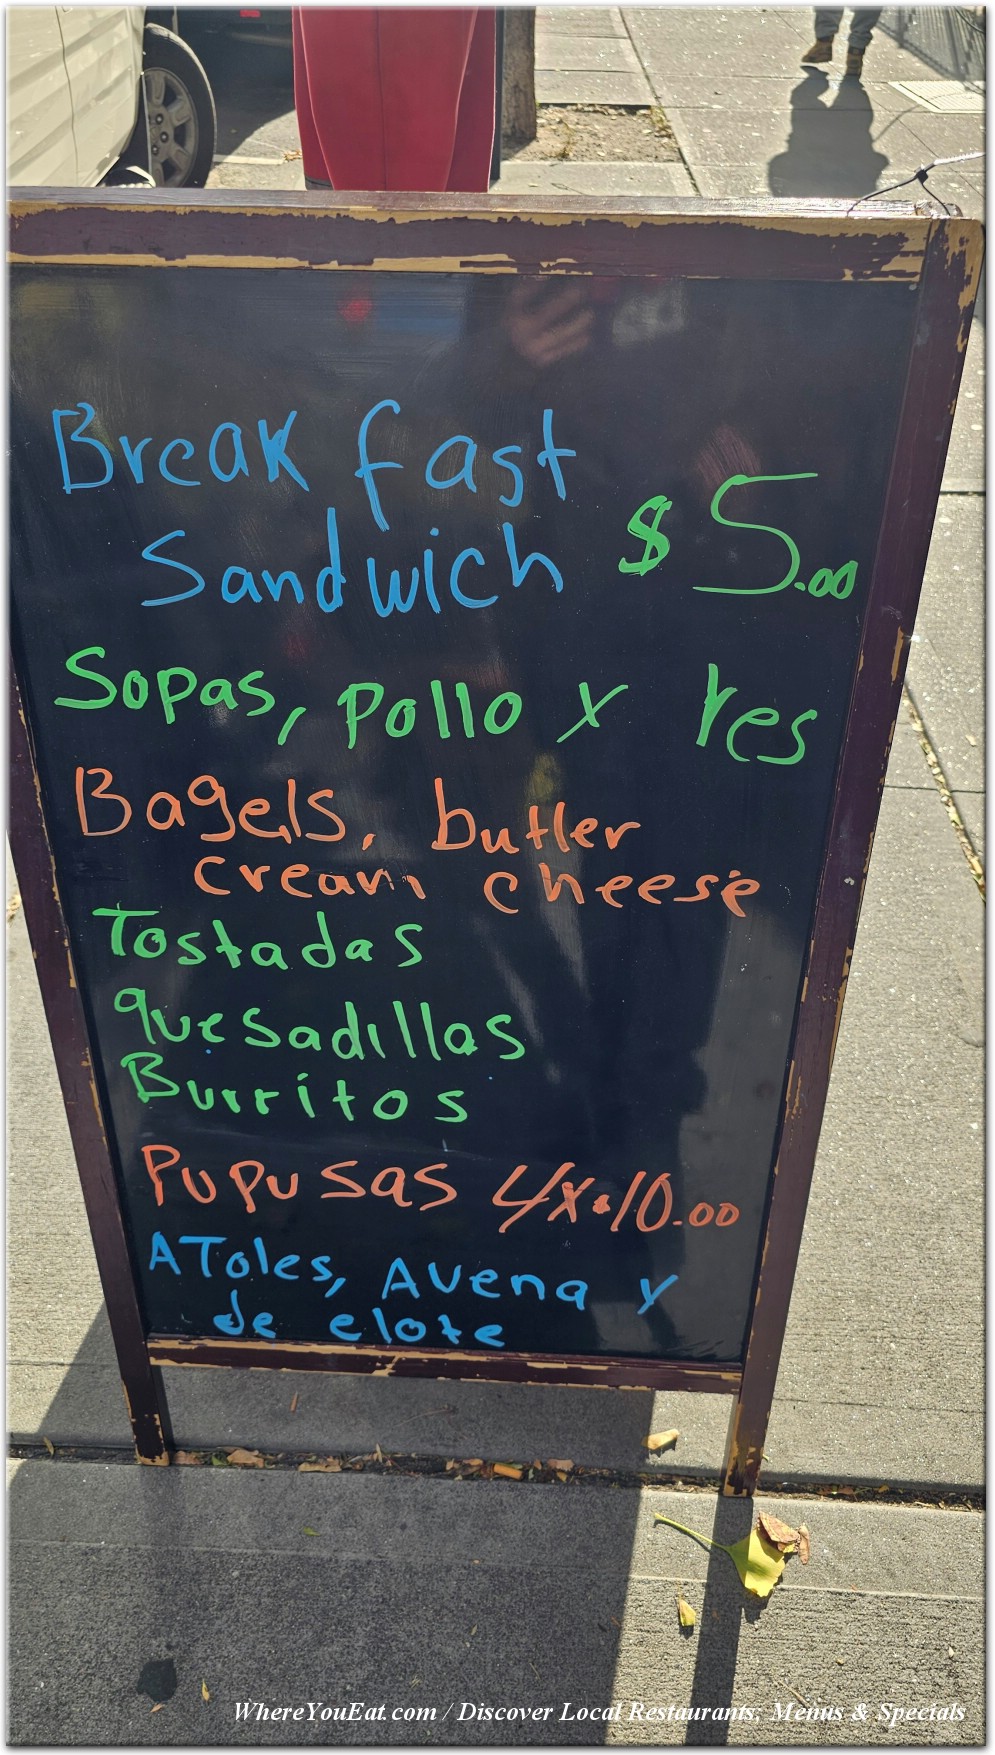 Breakfast
Sandwich $5.00
Sopas, pollo y res
Bagels, butter
cream cheese
Tostadas
quesadillas
Burritos
Pupusas 4x$10.00
AToles, Avena y
de elote
WhereYouEat.com / Discover Local Restaurants, Menus & Specials